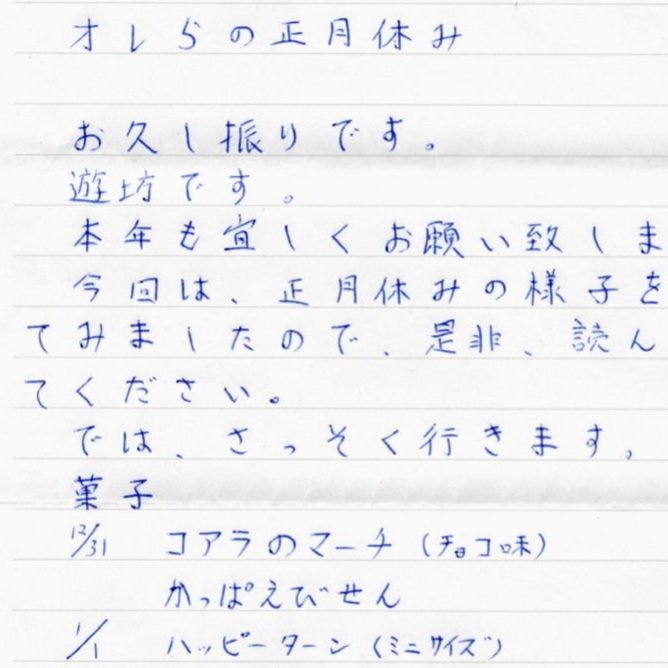 オレらの正月休み
お久し振りです。
遊坊です。
本年も宜しくお願い致しま
今回は、正月休みの様子を
てみましたので、是非、読ん
てください。
では、さっそく行きます。
菓子
12/31 コアラのマーチ（チョコ味）
かっぱえびせん
1/1 ハッピーターン（ミニサイズ）